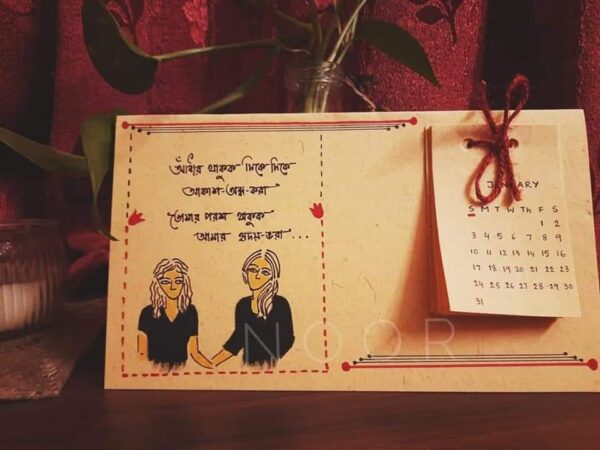 আঁধার থাকুক দিকে দিকে
আকাশ-অন্ধ-করা
তোমার পরশ থাকুক
আমার হৃদয়-ভরা...
JANUARY
S M T W Th F S
1 2
3 4 5 6 7 8 9
10 11 12 13 14 15 16
17 18 19 20 21 22 23
24 25 26 27 28 29 30
31
NOOR